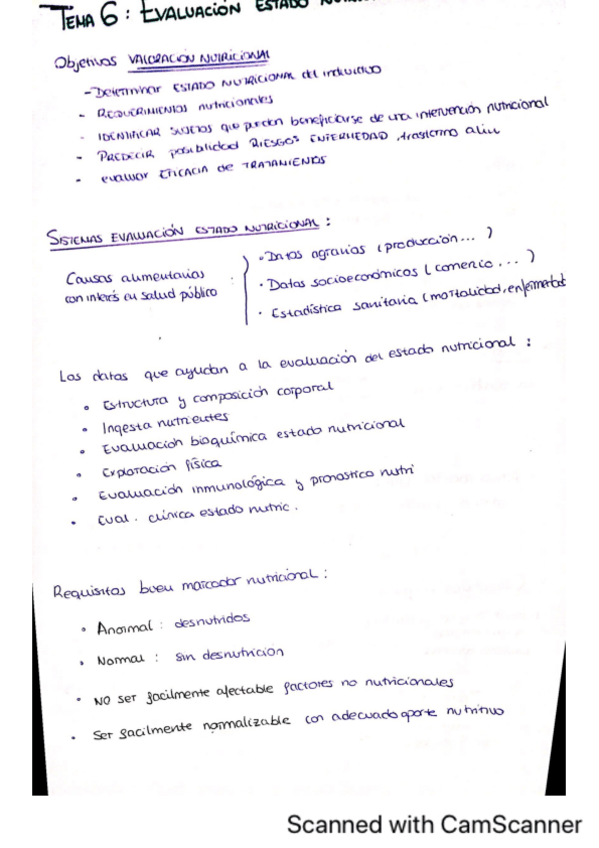 TEMA 6: EVALUACIÓN ESTADO
Objetivos VALORACIÓN NUTRICIONAL
- Determinar ESTADO NUTRICIONAL del individuo
- REQUERIMIENTOS nutricionales
- IDENTIFICAR SUJETOS que puedan beneficiarse de una intervención nutricional
- PREDECIR posibilidad RIESGOS ENFERMEDAD, trastorno alim
- evaluar EFICACIA de TRATAMIENTOS
SISTEMAS EVALUACIÓN ESTADO NUTRICIONAL:
Causas alimentarias con interés en salud público
· Datos agrarios (producción... )
· Datos socioeconómicos (comercio ... )
· Estadística sanitaria (mortalidad, enfermedad
Los datos que ayudan a la evaluación del estado nutricional:
• Estructura y composición corporal
• Ingesta nutrientes
• Evaluación bioquímica estado nutricional
• Exploración física
• Evaluación inmunológica y pronostico nutri
• Eval. clínica estado nutric.
Requisitos buen marcador nutricional:
• Anormal: desnutridos
• Normal: sin desnutrición
• NO ser facilmente afectable factores no nutricionales
• Ser facilmente normalizable con adecuado aporte nutritivo
Scanned with CamScanner